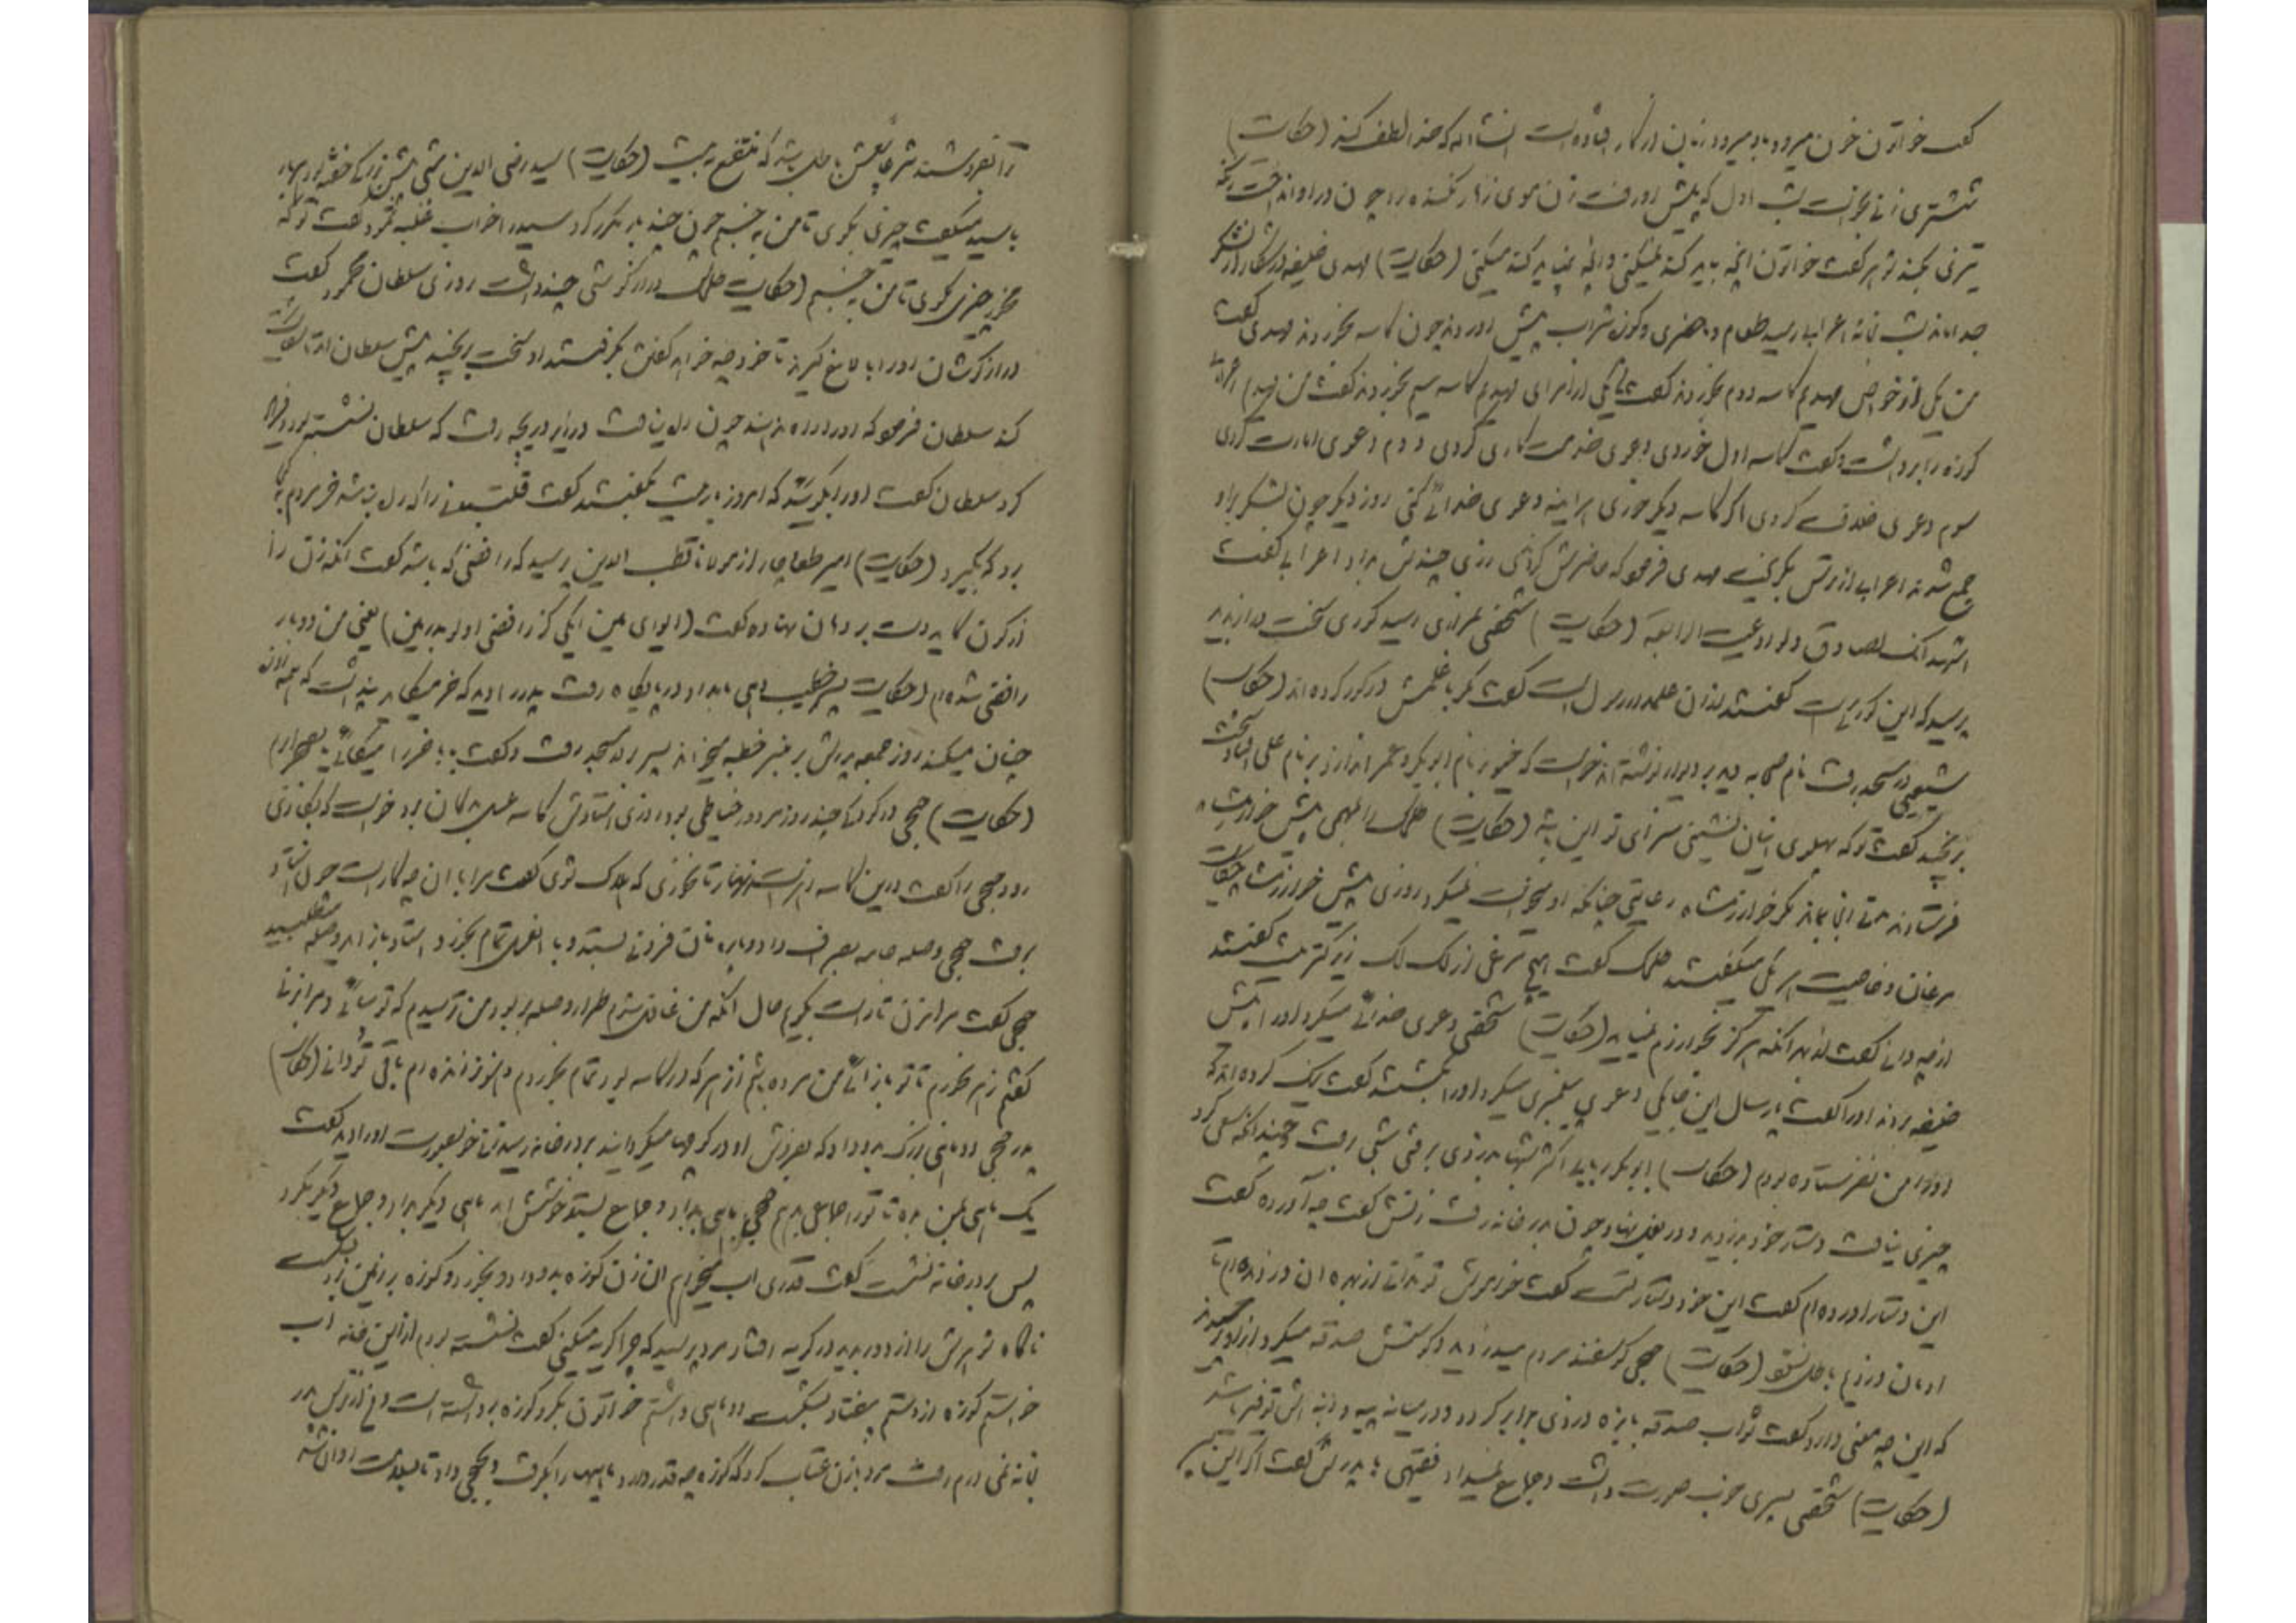 گفت خواتون خون میرود باد میرود زبان در کار افتاده است انشاءالله که خدا لطف کند (حکایت)
شخصی زنی بخواست شب اول که پیش او رفت زن موی زهار نکنده بود چون در او انداخت
تیزی بکند شوهر گفت خواتون آنچه باید کند نمیکنی و آنچه نباید کند میکنی (حکایت) مهدی خلیفه در شکار از لشکر
جدا ماند شب بخانه اعرابی رسید طعام ما حضری و کوزه شراب پیش آورد چون کاسه بخوردند مهدی گفت
من یکی از خواص مهدیم کاسه دوم بخوردند گفت یکی از امرای مهدیم کاسه سیم بخوردند گفت من مهدیم اعرابی
کوزه را برداشت و گفت کاسه اول خوردی دعوی خدمت کاری کردی دوم دعوی امارت کردی
سوم دعوی خلافت کردی اگر کاسه دیگر خوری هر آینه دعوی خدائی کنی روز دیگر چون لشکر بر او
جمع شدند اعرابی از ترس بگریخت مهدی فرمود که حاضرش کردند زری چندش بداد اعرابی گفت
اشهد انک لصادق ولو ادعیت الرابعة (حکایت) شخصی بمزاری رسید گوری سخت دراز بدید
پرسید که این گور کیست گفتند از آن علمدار رسول است گفت مگر با علمش در گور کرده اند (حکایت)
شیعیی در مسجد رفت نام صحابه دید بر دیوار نوشته اند خواست که خیو بر نام ابوبکر و عمر اندازد بر نام علی افتاد سخت
برنجید گفت تو که پهلوی اینان نشینی سزای تو این باشد (حکایت) طلحک را بمهمی پیش خوارزمشاه
فرستادند مدتی آنجا بماند مگر خوارزمشاه رعایتی چنانکه او میخواست نمیکرد روزی پیش خوارزمشاه حکایت
مرغان و خاصیت هر یکی میگفتند طلحک گفت هیچ مرغی از لک لک زیرکتر نیست گفتند
از چه دانی گفت از بهر آنکه هرگز بخوارزم نمیاید (حکایت) شخصی دعوی خدائی میکرد او را پیش
خلیفه بردند او را گفت پارسال اینجا یکی دعوی پیغمبری میکرد او را بکشتند گفت نیک کرده اند که
او را من نفرستاده بودم (حکایت) ابوبکر ربابی اکثر شبها بدزدی برفتی شبی رفت و چندانکه سعی کرد
چیزی نیافت دستار خود بدزدید و در بغل نهاد چون در خانه رفت زنش گفت چه آورده گفت
این دستار آورده ام گفت این خود دستار تست گفت خاموش تو ندانی از بهر آن دزدیده ام تا
آرمان دزدیم باطل نشود (حکایت) جحی گوسفند مردم میدزدید و گوشتش صدقه میکرد از او پرسیدند
که این چه معنی دارد گفت ثواب صدقه با بزه دزدی برابر گردد و در میانه پیه و دنبه اش توفیر باشد
(حکایت) شخصی پسری خوب صورت داشت و جماع نمیداد فقیهی با پدرش گفت اگر این پسر
را نفروشند شرعا بعتش باطل باشد که منتفع به نیست (حکایت) سید رضی الدین شبی پیش بزرگی خفته بود هر بار
با سید میگفت چیزی بگوی تا من بخسبم چون چند بار مکرر کرد سید را خواب غلبه کرد گفت تو گه
مخور چیزی مگوی تا من بخسبم (حکایت) طلحک درازگوشی چند داشت روزی سلطان محمود گفت
درازگوشان او را به الاغ گیرند تا خود چه خواهد گفتن بگرفتند او سخت برنجید پیش سلطان آمد تا شکایت
کند سلطان فرمود که او را راه ندهند چون راه نیافت در زیر دریچه رفت که سلطان نشسته بود و فریاد
کرد سلطان گفت او را بگوئید که امروز بار نیست بگفتند گفت قلتبانی را که بار نباشد خر مردم بچه
برد که بگیرد (حکایت) امیر طغاچار از مولانا قطب الدین پرسید که رافضی که باشد گفت آنکه زن را
از کون گاید دست بر دهان نهاده گفت (ای وای من ایکی کز رافضی اولو بدرمن) یعنی من دو بار
رافضی شده ام (حکایت) پسر خطیب دهی بامداد در پایگاه رفت پدر را دید که خر میگاید پنداشت که همه روز
چنان میکند روز جمعه پدرش بر منبر خطبه میخواند پسر بر در مسجد رفت و گفت بابا خر را میگائی یا بصحرا برم
(حکایت) جحی در کودکی چند روز مزدور خیاطی بود روزی استادش کاسه عسل بدکان برد خواست که بکاری
رود جحی را گفت درین کاسه زهر است زنهار تا نخوری که هلاک شوی گفت مرا با آن چه کار است چون استاد
برفت جحی وصله جامه بصراف داد و پاره نان فزونی بستد و با آن عسل تمام بخورد استاد باز آمد وصله میطلبید
جحی گفت مرا مزن تا راست بگویم حال آنکه من غافل شدم طرار وصله بربود من ترسیدم که تو بیائی و مرا بزنی
گفتم زهر بخورم تا تو باز آئی من مرده باشم آن زهر که در کاسه بود تمام بخوردم و هنوز زنده ام باقی تو دانی (حکایت)
پدر جحی دو ماهی بزرگ بدو داد که بفروش او در کوچها میگردانید بر در خانه رسید زنی خوبصورت او را دید گفت
یک ماهی بمن بده تا ترا جماعی بدهم جحی ماهی بداد و جماع بستد خوشش آمد ماهی دیگر بداد و جماعی دیگر بکرد
پس بر در خانه نشست گفت قدری آب میخواهم آن زن کوزه بدو داد بخورد و کوزه بر زمین زد بشکست
ناگاه شوهرش را از دور بدید در گریه افتاد مرد پرسید که چرا گریه میکنی گفت تشنه بودم از این خانه آب
خواستم کوزه از دستم بیفتاد بشکست دو ماهی داشتم خواتون بگرو کوزه برداشته است و من از ترس پدر
بخانه نمی یارم رفت مرد با زن عتاب کرد که کوزه چه قدر دارد ماهیها را بگرفت و بجحی داد تا بسلامت روان شد